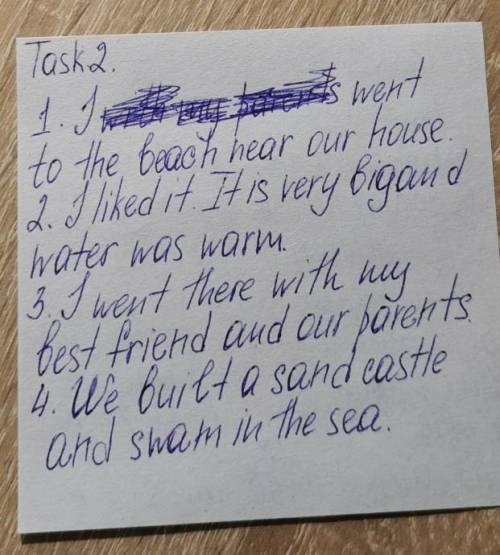 Task 2.
1. I went
to the beach near our house.
2. I liked it. It is very big and
water was warm.
3. I went there with my
best friend and our parents.
4. We built a sand castle
and swam in the sea.